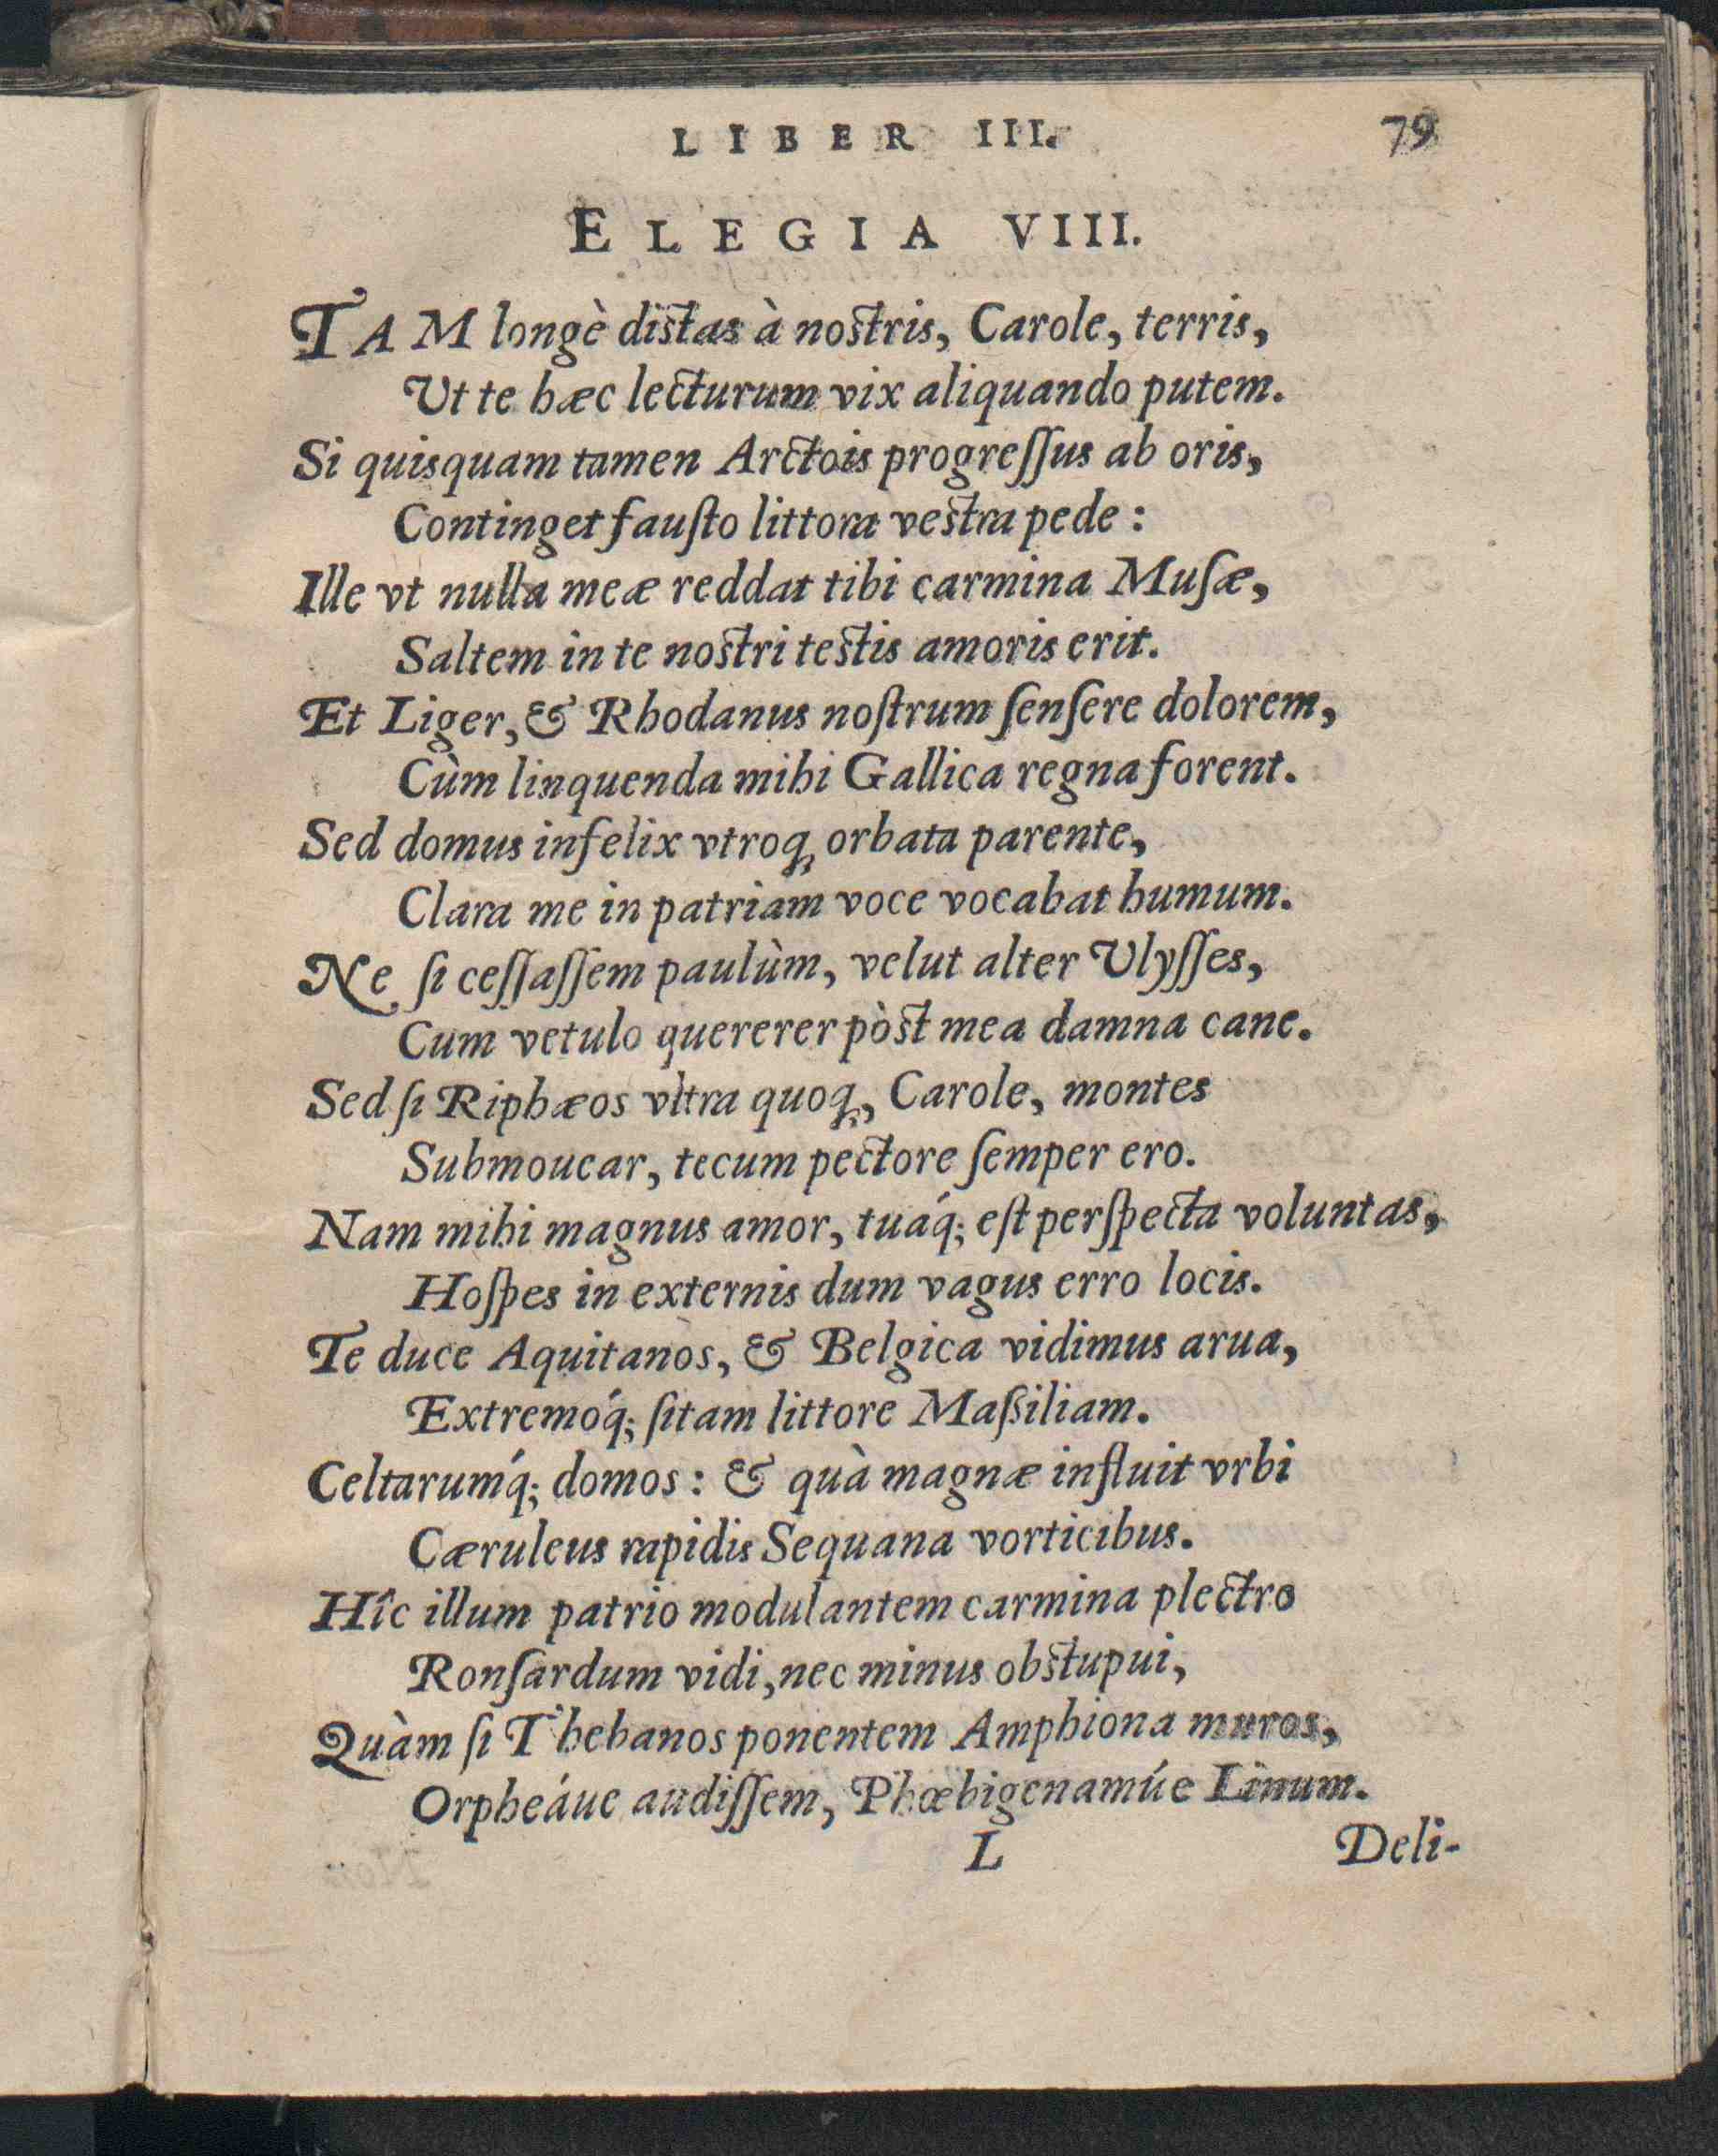 LIBER III. 79
ELEGIA VIII.
TAM longè distas à nostris, Carole, terris,
Ut te hæc lecturum vix aliquando putem.
Si quisquam tamen Arctois progreſſus ab oris,
Continget fauſto littora vestra pede:
Ille vt nulla meæ reddat tibi carmina Muſæ,
Saltem in te nostri testis amoris erit.
Et Liger, & Rhodanus noſtrum ſenſere dolorem,
Cùm linquenda mihi Gallica regna forent.
Sed domus infelix vtroq; orbata parente,
Clara me in patriam voce vocabat humum.
Ne ſi ceſſaſſem paulùm, velut alter Vlyſſes,
Cum vetulo quererer pòst mea damna cane.
Sed ſi Riphæos vltra quoq;, Carole, montes
Submouear, tecum pectore ſemper ero.
Nam mihi magnus amor, tuáq; eſt perſpecta voluntas,
Hoſpes in externis dum vagus erro locis.
Te duce Aquitanos, & Belgica vidimus arua,
Extremóq; ſitam littore Maſsiliam.
Celtarumq́; domos: & quà magnæ influit vrbi
Cæruleus rapidis Sequana vorticibus.
Hîc illum patrio modulantem carmina plectro
Ronſardum vidi, nec minus obstupui,
Quàm ſi Thebanos ponentem Amphiona muros,
Orpheáue audiſſem, Phœbigenamúe Linum.
L Deli-